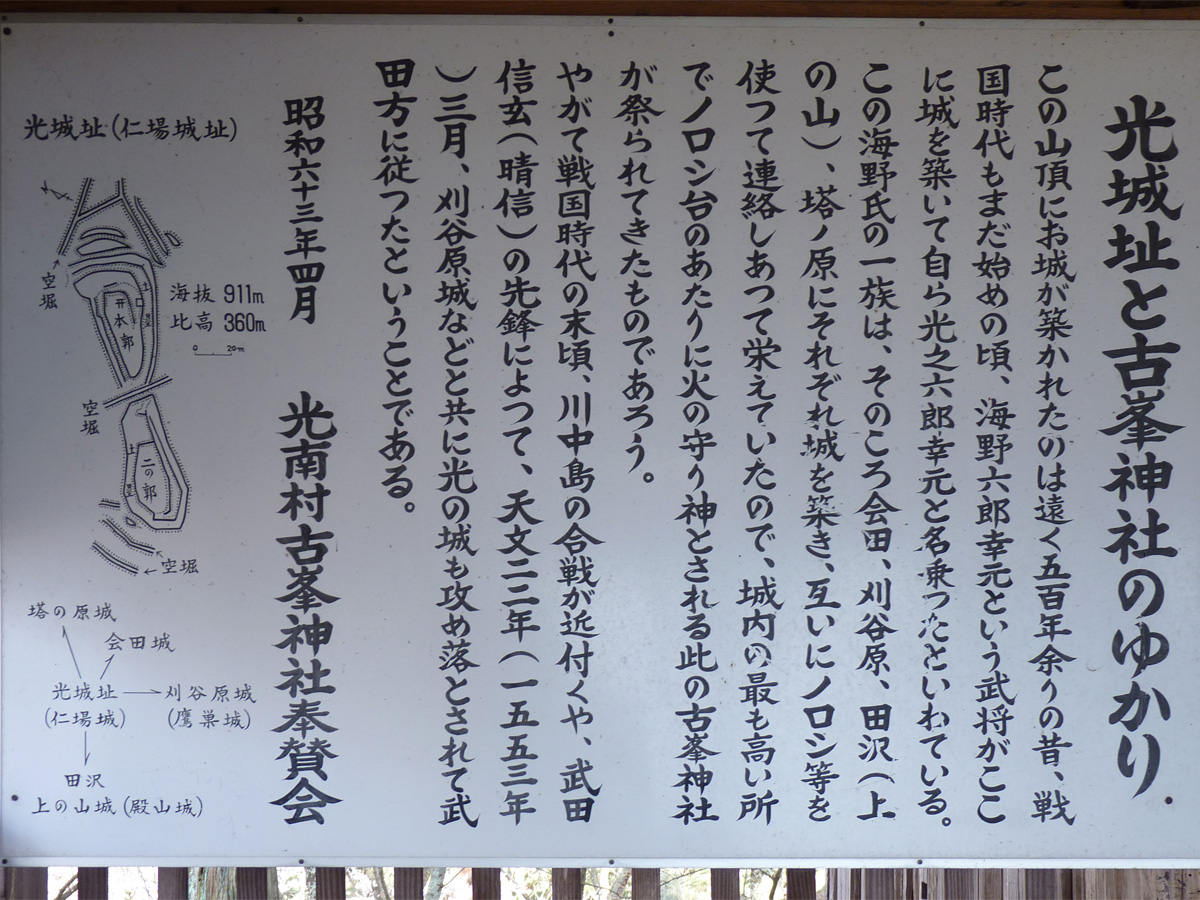 光城址と古峯神社のゆかり
この山頂にお城が築かれたのは遠く五百年余りの昔、戦
国時代もまだ始めの頃、海野六郎幸元という武将がここ
に城を築いて自ら光之六郎幸元と名乗つたといわている。
この海野氏の一族は、そのころ会田、刈谷原、田沢(上
の山)、塔ノ原にそれぞれ城を築き、互いにノロシ等を
使つて連絡しあつて栄えていたので、城内の最も高い所
でノロシ台のあたりに火の守り神とされる此の古峯神社
が祭られてきたものであろう。
やがて戦国時代の末頃、川中島の合戦が近付くや、武田
信玄(晴信)の先鋒によつて、天文二二年(一五五三年
)三月、刈谷原城などと共に光の城も攻め落とされて武
田方に従つたということである。
昭和六十三年四月 光南村古峯神社奉賛会
光城址(仁場城址)
空堀
海抜 911m
比高 360m
0 20m
土塁
井
本郭
空堀
土塁
二の郭
←空堀
塔の原城
会田城
光城址
(仁場城)
刈谷原城
(鷹巣城)
田沢
上の山城(殿山城)